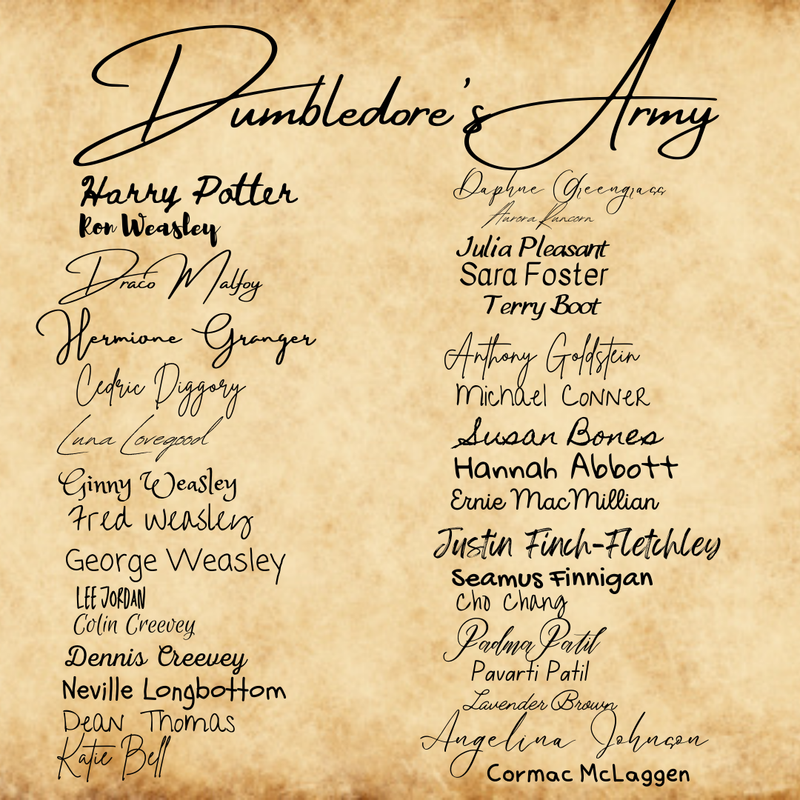 Dumbledore's Army
Harry Potter
Ron Weasley
Draco Malfoy
Hermione Granger
Cedric Diggory
Luna Lovegood
Ginny Weasley
Fred Weasley
George Weasley
LEE JORDAN
Colin Creevey
Dennis Creevey
Neville Longbottom
Dean Thomas
Katie Bell
Daphne Greengrass
Aurora Runcorn
Julia Pleasant
Sara Foster
Terry Boot
Anthony Goldstein
Michael Conner
Susan Bones
Hannah Abbott
Ernie MacMillian
Justin Finch-Fletchley
Seamus Finnigan
Cho Chang
Padma Patil
Pavarti Patil
Lavender Brown
Angelina Johnson
Cormac McLaggen